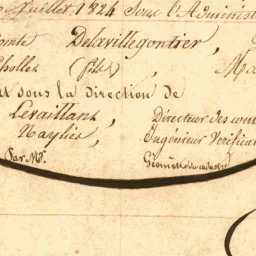 Juillet 1824 Sous l'Administ
omte Delavillegontier,
Chollet (fils), Ma
et sous la direction de
Levaillant, Directeur des con
Naylies, Ingénieur Vérifica
Par Mr. Géomètre